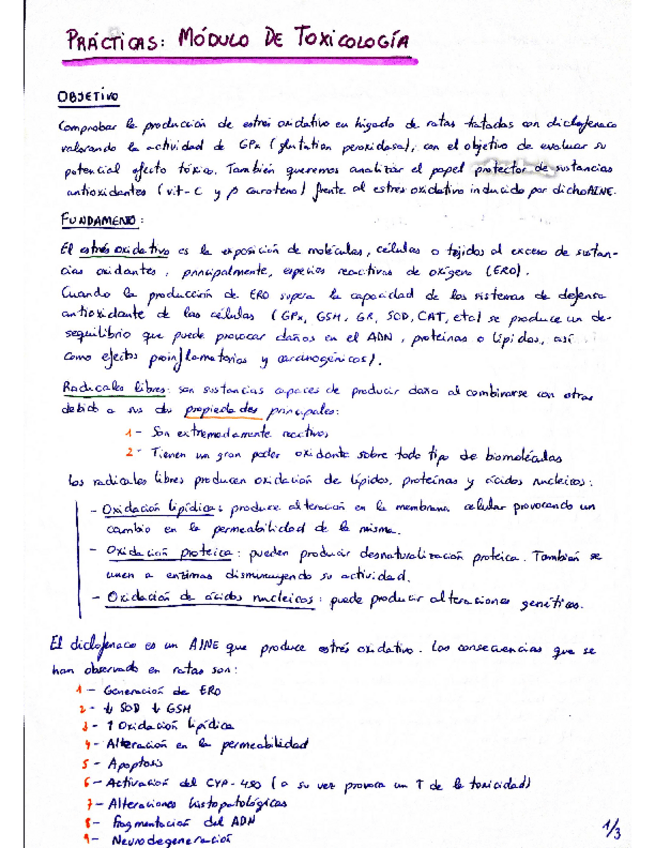 PRÁCTICAS: MÓDULO DE TOXICOLOGÍA
OBJETIVO
Comprobar la producción de estrés oxidativo en hígado de ratas tratadas con diclofenaco
valorando la actividad de GPx (glutation peroxidasa), con el objetivo de evaluar su
potencial efecto tóxico. También queremos analizar el papel protector de sustancias
antioxidantes (vit-C y β caroteno) frente al estres oxidativo inducido por dicho AINE.
FUNDAMENTO:
El estrés oxidativo es la exposición de moléculas, células o tejidos al exceso de sustan-
cias oxidantes, principalmente, especies reactivas de oxígeno (ERO).
Cuando la producción de ERO supera la capacidad de los sistemas de defensa
antioxidante de las células (GPx, GSH, GR, SOD, CAT, etc) se produce un de-
sequilibrio que puede provocar daños en el ADN, proteínas o lípidos, así
como efectos proinflamatorios y carcinogénicos).
Radicales libres: son sustancias capaces de producir daño al combinarse con otras
debido a sus dos propiedades principales:
1- Son extremadamente reactivos
2- Tienen un gran poder oxidante sobre todo tipo de biomoléculas
Los radicales libres producen oxidación de lípidos, proteínas y ácidos nucleicos:
- Oxidación lipídica: produce alteración en la membrana celular provocando un
cambio en la permeabilidad de la misma.
- Oxidación proteica: pueden producir desnaturalización proteica. También se
unen a enzimas disminuyendo su actividad.
- Oxidación de ácidos nucleicos: puede producir alteraciones genéticas.
El diclofenaco es un AINE que produce estrés oxidativo. Las consecuencias que se
han observado en ratas son:
1- Generación de ERO
2- ↓ SOD ↓ GSH
3- ↑ Oxidación lipídica
4- Alteración en la permeabilidad
5- Apoptosis
6- Activación del CYP-450 (a su vez provoca un ↑ de la toxicidad)
7- Alteraciones histopatológicas
8- Fragmentación del ADN
9- Neurodegeneración
1/3